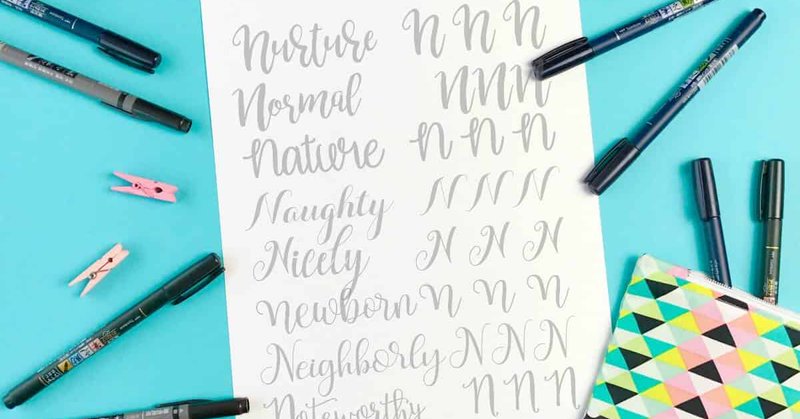 Nurture N N N
Normal N N N
Nature N N N
Naughty N N N
Nicely N N N
Newborn N N N
Neighborly N N N
Noteworthy N N N